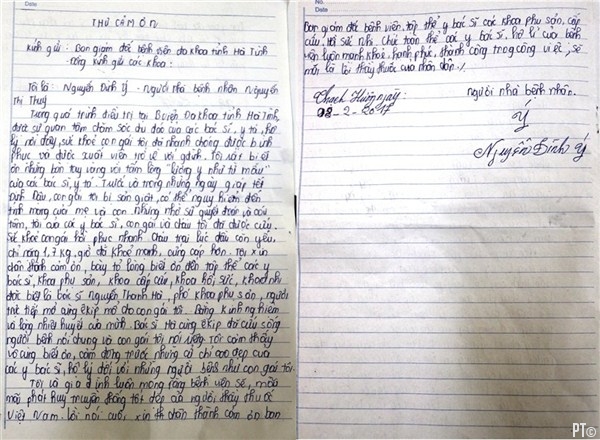 Date
THƯ CẢM ƠN
Kính gửi: - Ban giám đốc bệnh viện đa khoa tỉnh Hà Tĩnh
- đồng kính gửi các khoa:
Tôi là: Nguyễn Đình Ý - người nhà bệnh nhân Nguyễn
Thị Thuỷ
Trong quá trình điều trị tại Bviện Đa khoa tỉnh Hà Tĩnh,
được sự quan tâm chăm sóc chu đáo của các bác sĩ, y tá, hộ
lý nơi đây, sức khoẻ con gái tôi đã nhanh chóng được bình
phục và được xuất viện trở về với gđình. Tôi rất biết
ơn những bàn tay vàng với tấm lòng "lương y như từ mẫu"
của các bác sĩ, y tá. Trước và trong những ngày giáp tết
Đinh Dậu, con gái tôi bị sản giật, có thể nguy hiểm đến
tính mạng của mẹ và con nhưng nhờ sự quyết đoán và cái
tâm, tài của các y bác sĩ, con gái và cháu tôi đã được cứu.
Sức khoẻ con gái hồi phục nhanh. Cháu trai lúc đầu còn yếu,
chỉ nặng 1,7 kg, giờ đã khoẻ mạnh, cứng cáp hơn. Tôi xin
chân thành cảm ơn, bày tỏ lòng biết ơn đến tập thể các y
bác sĩ, khoa phụ sản, khoa cấp cứu, khoa hồi sức, khoa nhi
đặc biệt là bác sĩ Nguyễn Thanh Hà, phó khoa phụ sản, người
trực tiếp mổ cùng êkip mổ cho con gái tôi. Bằng kinh nghiệm
và lòng nhiệt huyết của mình. Bác sĩ Hà cùng êkip đã cứu sống
người bệnh nói chung và con gái tôi nói riêng. Tôi cảm thấy
vô cùng biết ơn, cảm động trước những cử chỉ cao đẹp của
các y bác sĩ, hộ lý đối với những người bệnh như con gái tôi.
Tôi và gia đình luôn mong rằng bệnh viện sẽ, mãi
mãi phát huy truyền thống tốt đẹp của người thầy thuốc
Việt Nam. Lời nói cuối, xin thành chân thành cảm ơn ban
No.
Date
Ban giám đốc bệnh viện, tập thể y bác sĩ các khoa phụ sản, cấp
cứu, hồi sức, nhi. Chúc toàn thể các y bác sĩ, hộ lí của bệnh
viện luôn mạnh khoẻ, hạnh phúc, thành công trong công việc, sẽ
mãi là lời thầy thuốc của nhân dân./.
Thạch Hưng, ngày
08-2-2017
người nhà bệnh nhân.
Ý
Nguyễn Đình Ý
PT©